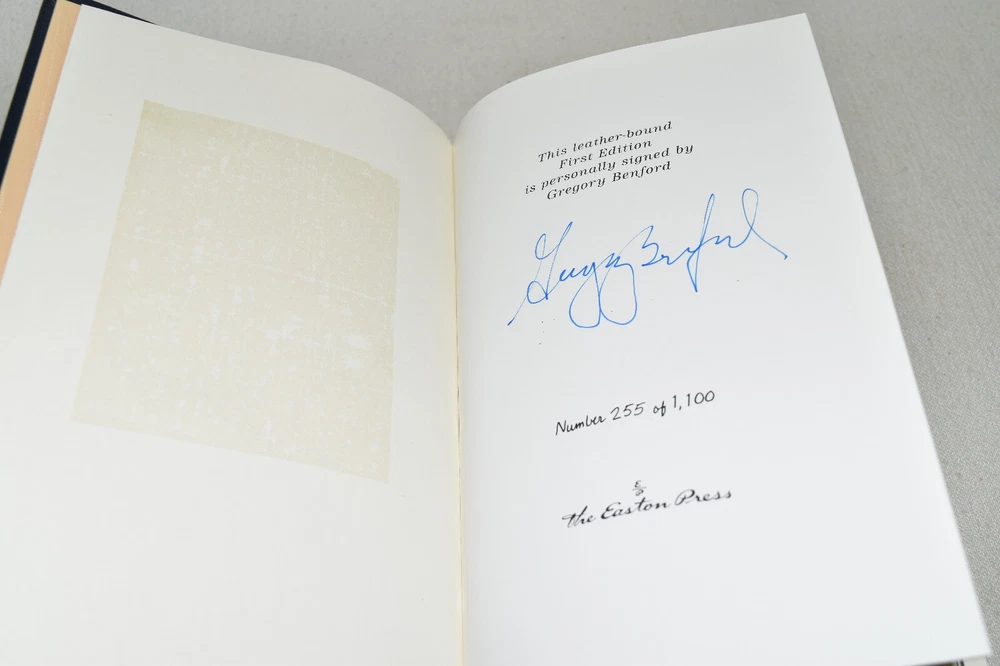 This leather-bound
First Edition
is personally signed by
Gregory Benford
Gregory Benford
Number 255 of 1,100
the Easton Press